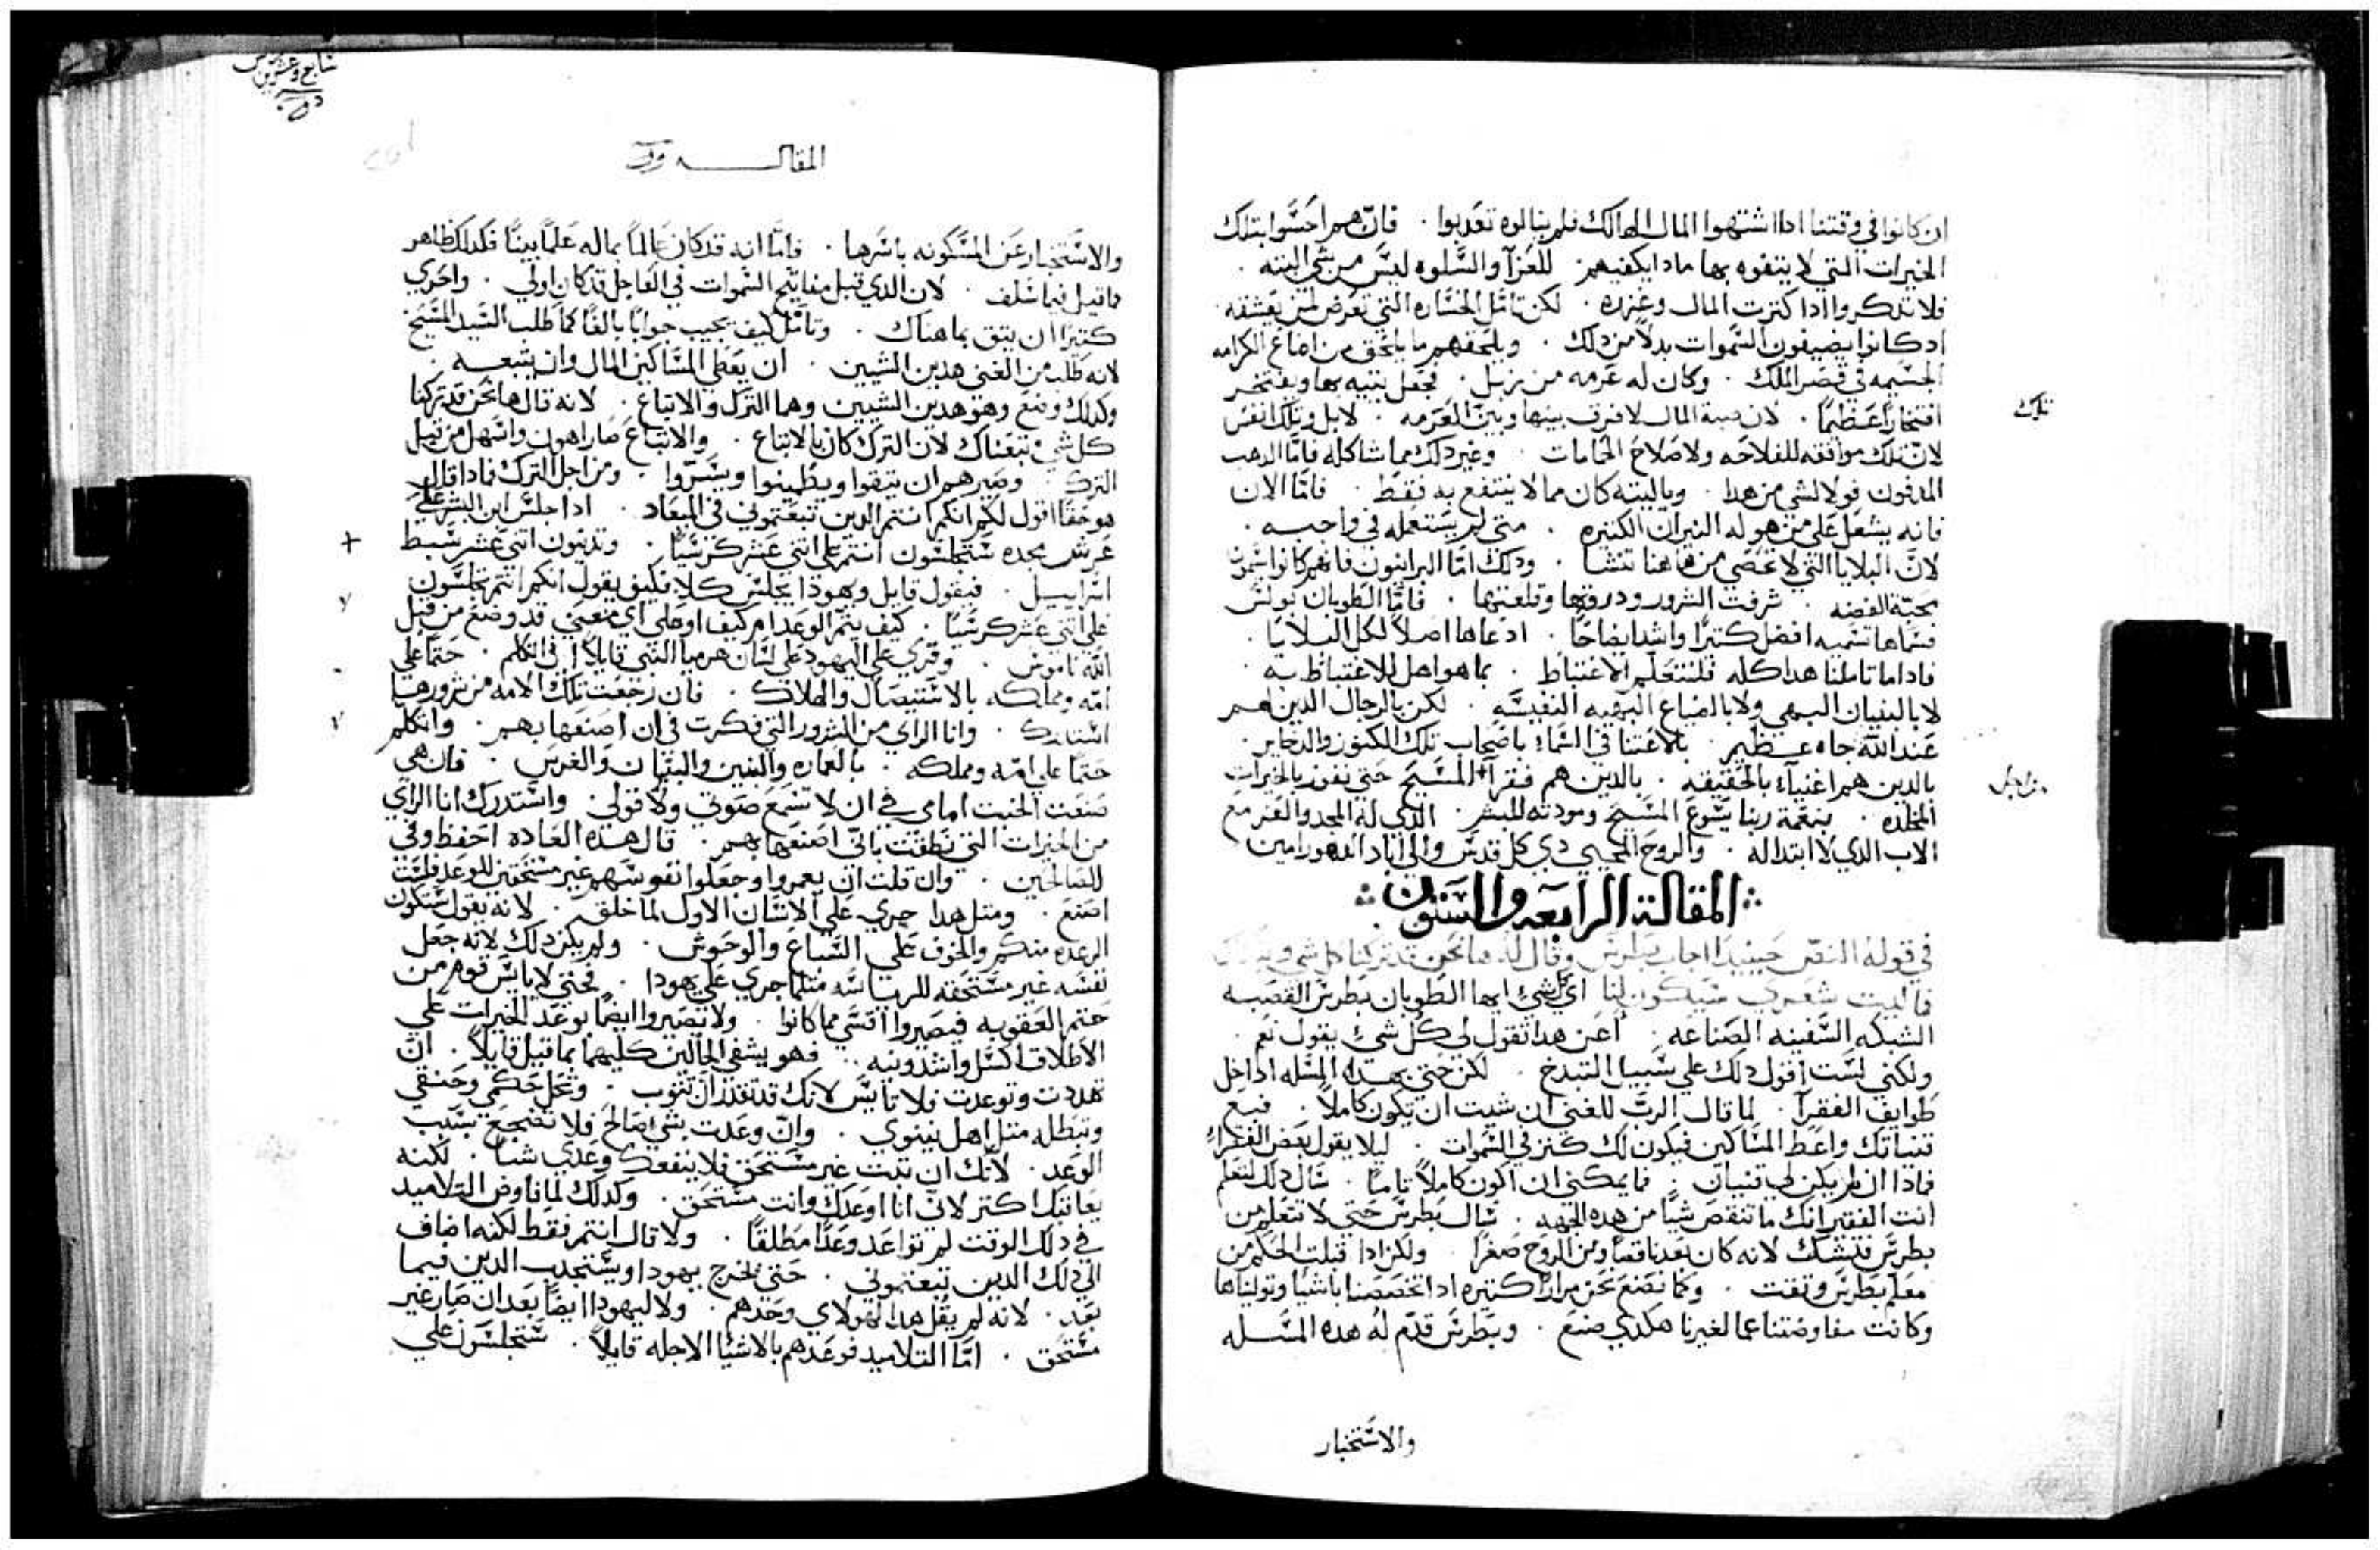 ان كانوا في وقتنا اذا اشتهوا المال الهالك فلم ينالوه تعدبوا . فان هم احسوا بتلك
الخيرات التي لا يتفوه بها مادا يكفيهم للعزآ والسلوه ليس من شي البته .
فلا تدكروا ادا كترت المال وغزره . لكن تامل الخساره التي تعرض لمن يعشقه
ادكانوا يضيفون السموات بدلاً من دلك . ويلحقهم ما يلحق من اضاع الكرامه
الجسيمه في قصر الملك . وكان له عرمه من زبل . فجعل يتيه بها ويفتخر
افتخارًا عظيمًا . لان صبة المال لا فرق بينها وبين العرمه . لا بل وتلك انفس
تلك
لان تلك موافقه للفلاحه ولاصلاح الحمامات . وغير دلك مما شاكله فامّا الدهب
المدفون فولا لشي من هدا . وياليته كان مما لا ينتفع به فقط . فامّا الان
فانه يشعل علي من هو له النيران الكتيره . متي لم يستعمله في واجبه .
لانّ البلايا التي لا تحصي من هاهنا تنشا . ودلك امّا البرانيون فانهم كانوا يسمون
محبّة الفضه . شرفت الشرور ودروتها وقلعتها . فامّا الطوبان بولس
فسماها تسميه افضل كتيرًا واشد ايضاحًا . ادعاها اصلاً لكل البلايا .
فادا ما تاملنا هدا كله فلنتعلم الاغتباط . بما هو اهل للاغتباط به
لا بالبنيان البهي ولا بالضياع البهيه النفيسه . لكن بالرجال الدين لهم
عند الله جاه عظيم . بالاغتنا في السماء باصحاب تلك الكنوز والدخاير .
بالدين هم اغنيآء بالحقيقه . بالدين هم فقرآ المسيح حتي نفوز بالخيرات
من اجل
المخلده . بنعمة ربنا يسوع المسيح ومودته للبشر . الدي له المجد والعز مع
الاب الدي لا ابتدا له . والروح المحيي دي كل قدس والي اباد الدهور امين
المقالة الرابعه والستون
في قوله النص حينيد اجاب بطرس وقال له هانحن قد تركنا كل شي وتبعناك
فما ليت شعري سيكون لنا اي شي ايها الطوبان بطرس القصبه
الشبكه السفينه الصناعه . أعن هدا تقول لي كل شي يقول نعم .
ولكني لست اقول دلك علي سبيل التبدخ . لكن حتي بهده المسله اداخل
طوايف الفقرآ . لما قال الربّ للغني ان شيت ان تكون كاملاً . فبع
قنياتك واعط المساكين فيكون لك كنز في السموات . ليلا يقول بعض الفقراء
فمادا ان لم يكن لي قنيان . فما يمكنني ان اكون كاملاً تامًا . سال دلك لتعلم
انت الفقير انك ما تنقص شيًا من هده الجهه . سال بطرس حتي لا تتعلم من
بطرس فتشك لانه كان بعد ناقصًا ومن الروح صفرًا . ولكن ادا قبلت الحكم من
معلم بطرس وتقت . وكما نصنع نحن مرارًا كتيره ادا تخصصنا باشيا وتوليناها
وكانت مفاوضتنا عما لغيرنا هكدي صنع . وبطرس قدّم له هده المسله
والاستخبار
سابع وعشرين
المقاله
والاستخبار عن المسكونه باسرها . فامّا انه قد كان عالمًا بماله علمًا بينًا فكدلك ظاهر
ما قيل فيما سلف . لان الدي قبل مفاتيح السموات في العاجل قد كان اولي . واحري
كتيرًا ان يتق بما هناك . وتامل كيف يجيب جوابًا بالغًا كما طلب السيد المسيح
لانه طلب من الغني هدين الشيين . ان يعطي المساكين المال وان يتبعه .
وكدلك وضع وهو هدين الشيين وهما الترك والاتباع . لانه قال ها نحن قد تركنا
كل شي وتبعناك لان الترك كان بالاتباع . والاتباع صار اهون واسهل من قبل
الترك . وصيرهم ان يتقوا ويطمينوا ويسرّوا . ومن اجل الترك فمادا قال
هو حقًا اقول لكم انكم انتم الدين تبعتموني في الميعاد . ادا جلس ابن البشر علي
عرش مجده ستجلسون انتم علي اتني عشر كرسيًا . وتدينون اتني عشر سبط
+
اسراييل . فيقول قايل ويهودا يجلس كلا فكيف يقول انكم انتم تجلسون
علي اتني عشر كرسيًا . كيف يتم الوعد ام كيف او علي اي معني قد وضع من قبل
الله ناموس . وقري علي اليهود علي لسان هرميا النبي قايلاً ان اتكلم . حتمًا علي
امّه ومملكه بالاستيصال والهلاك . فان رجعت تلك الامه من شرورها
استدرك . وانا الراي من الشرور التي فكرت في ان اصنعها بهم . واتكلم
حتمًا علي امّه ومملكه . بالعماره والبنين والبنيان والغرس . فان هي
صنعت الخبت امامي في ان لا تسمع صوتي ولا قولي واستدرك انا الراي
من الخيرات التي نطقت باني اصنعها بهم . قال هده العاده احفظ وفي
للصالحين . وان قلت ان يعمروا وجعلوا نفوسهم غير مستحقين للوعد فلست
اصنع . ومتل هدا جري علي الانسان الاول لما خلق . لانه يقول ستكون
الرعده منكم والخوف علي السباع والوحوش . ولم يكن دلك لانه جعل
نفسه غير مستحقه للرياسه متلما جري علي يهودا . فحتي لا يايس قوم من
حتم العقوبه فيصيروا اقسي مما كانوا . ولا تصيروا ايضًا بوعد الخيرات علي
الاطلاق اكسل واشد ونيه . فهو يشفي الحالين كليهما بما قيل قايلاً . ان
تهددت وتوعدت فلا تايس لانك قد تقدر ان تتوب . وتحل حكمي وحنقي
وتبطله متل اهل نينوي . وان وعدت بشي صالح فلا تضجع بسبب
الوعد . لانك ان تبت غير مستحق فلا ينفعك وعدي شيا . لكنه
يعاقبك اكتر لاني انا اوعدك وانت مستحق . وكدلك لما فاوض التلاميد
في دلك الوقت لم تواعد وعدًا مطلقًا . ولا قال انتم فقط لكنه اضاف
الي دلك الدين تبعتموني . حتي يخرج يهودا ويستجدب الدين فيما
بعد . لانه لم يقل هدا لهولاي وحدهم . ولا ليهودا ايضًا بعد ان صار غير
مستحق . امّا التلاميد فوعدهم بالاشيا الاجله قايلاً . ستجلسون علي